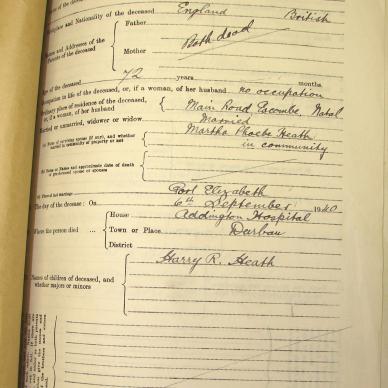 Birthplace and Nationality of the deceased England British
Names and Addresses of the Parents of the deceased
Father
Mother
Both dead
Age of the deceased 72 years months.
Occupation in life of the deceased, or, if a woman, of her husband no occupation
Ordinary place of residence of the deceased, or, if a woman, of her husband Main Road Pacombe, Natal
Married or unmarried, widower or widow Married
(a) Name of surviving spouse (if any), and whether married in community of property or not Martha Phoebe Heath
in community
(b) Name or Names and approximate date of death of predeceased spouse or spouses
(c) Place of last marriage Port Elizabeth
The day of the decease: On 6th September 1940
Where the person died
House Addington Hospital
Town or Place Durban
District
Names of children of deceased, and whether majors or minors Harry R. Heath